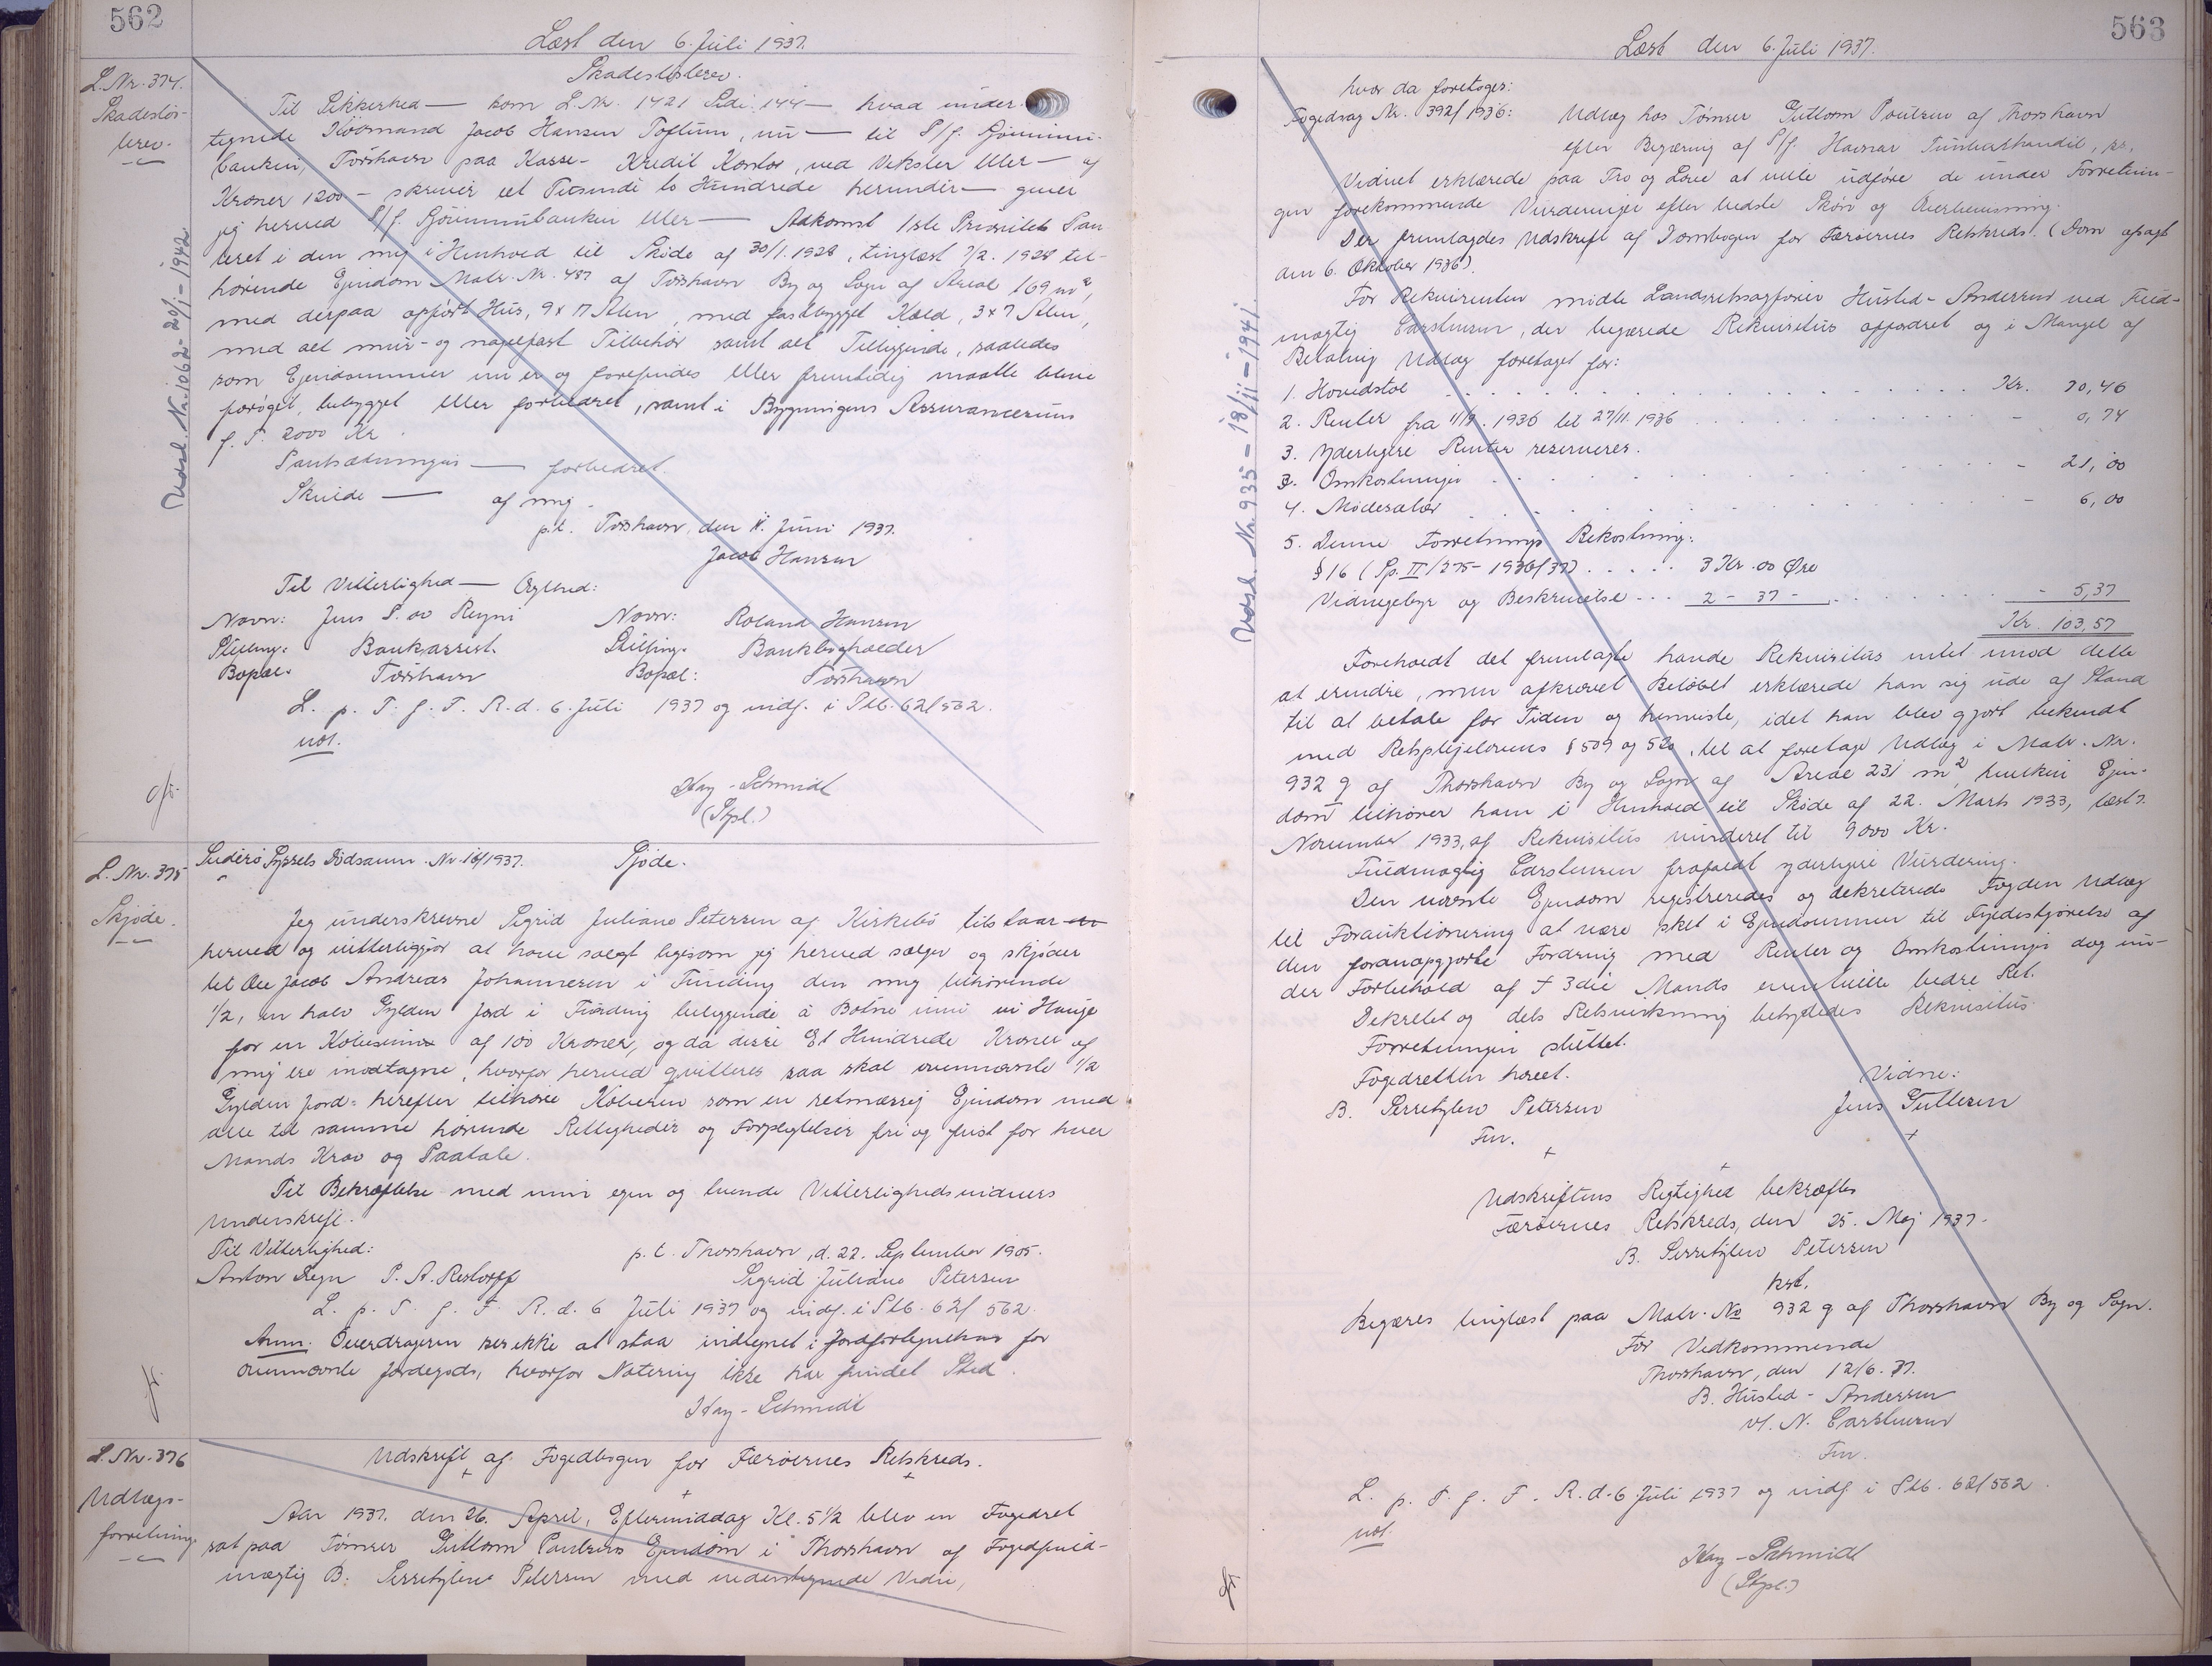 562
Læst den 6. Juli 1937.
L. Nr. 374.
Skadesløs-
brev.
Udsl. Nr. 1062 - 20/1 - 1942
Skadesløsbrev.
Til Sikkerhed — som L. Nr. 1421 Side 144 — hvad under-
tegnede Købmand Jacob Hansen Toftum, nu — til P/f.
banken, Torshavn paa Kasse-Kredit Konto, ved Veksler eller — af
Kroner 1200 — skriver et Tusinde to Hundrede herunder — giver
jeg herved P/f. eller — Adkomst 1ste Prioritets Pan-
teret i den mig i Henhold til Skøde af 30/1. 1928, tinglæst 7/2. 1928 til-
hørende Ejendom Matr. Nr. 487 af Torshavn By og Sogn af Areal 169 m²,
med derpaa opført Hus, 9 x 17 Alen, med fastbygget Kæld, 3 x 7 Alen,
med alt mur- og nagelfast Tilbehør samt alt Tilliggende, saaledes
som Ejendommen nu er og forefindes eller fremtidig maatte blive
forøget, bebygget eller forbedret, samt i Bygningens Assurancesum
p. T. 2000 Kr.
Pantsætningen — forbedret.
Skulde — af mig.
p.t. Torshavn, den 11. Juni 1937.
Jacob Hansen
Til Vitterlighed — Ægthed:
Navn: Jens P. av Reyni Navn: Roland Hansen
Stilling: Bankassist. Stilling: Bankbogholder
Bopæl: Torshavn Bopæl: Torshavn
L. p. T. f. F. R. d. 6. Juli 1937 og indf. i Ptb. 62/562.
not.
Kay-Schmidt
(Stpl.)
L. Nr. 375
Skjøde.
Suderø Syssels Dødsanm. Nr. 16/1937. Sjøde.
Jeg underskrevne Sigrid Juliane Petersen af Kirkebø tilstaar
herved og vitterliggjør at have solgt ligesom jeg herved sælger og skjøder
til Ole Jacob Andreas Johannesen i Funding den mig tilhørende
1/2, en halv Gylden Jord i Funding beliggende á Botne inni ui Hauge
for en Købesum af 100 Kroner, og da disse Et Hundrede Kroner af
mig ere modtagne, hvorfor herved qvitteres saa skal ovennævnte 1/2
Gylden Jord herefter tilhøre Køberen som en retmæssig Ejendom med
alle til samme hørende Rettigheder og Forpligtelser fri og frist for hver
Mands Krav og Paatale.
Til Bekræftelse med min egen og tvende Vitterlighedsvidners
Underskrift.
Til Vitterlighed: p. t. Thorshavn, d. 22. September 1905.
Anton Degn P. A. Restorff Sigrid Juliane Petersen
L. p. T. f. F. R. d. 6 Juli 1937 og indf. i Ptb. 62/562.
Anm. Overdrageren ses ikke at staa indtegnet i Jordfortegnelsen for
ovennævnte Jordegods, hvorfor Notering ikke har fundet Sted.
Kay-Schmidt
L. Nr. 376
Udlægs-
forretning.
Udskrift af Fogedbogen for Færøernes Retskreds.
Aar 1937. den 26. April, Eftermiddag Kl. 5 1/2 blev en Fogedret
sat paa Tømrer Guttorm Poulsens Ejendom i Thorshavn af Fogedfuld-
mægtig B. Serritzlew Petersen med undertegnede Vidne,
563
Læst den 6. Juli 1937.
Udsl. Nr. 935 - 18/11 - 1941.
hvor da foretoges:
Fogedsag Nr. 392/1936: Udlæg hos Tømrer Guttorm Poulsen af Thorshavn
efter Begæring af P/f. Havnar Timburhandil,
Vidnet erklærede paa Tro og Love at ville udføre de under Forretnin-
gen forekommende Vurderinger efter bedste Skøn og Overbevisning.
Der fremlagdes Udskrift af Dombogen for Færøernes Retskreds. (Dom afsagt
den 6. Oktober 1936).
For Rekvirenten mødte Landsretssagfører Husted-Andersen ved Fuld-
mægtig Carstensen, der begærede Rekvisitus opfordret og i Mangel af
Betaling Udlæg foretaget for:
1. Hovedstol . . . Kr. 70,46
2. Renter fra 11/9. 1936 til 27/11. 1936 . . . - 0,74
3. Yderligere Renter reserveres.
3. Omkostninger . . . - 21,00
4. Mødesalær . . . - 6,00
5. Denne Forretnings Bekostning:
§ 16 (Sp. II/275 - 1936/37) . . . 3 Kr. 00 Øre
Vidnegebyr og Beskrivelse . . . 2 - 37 - . . . - 5,37
Kr. 103,57
Foreholdt det fremlagte havde Rekvisitus intet imod dette
at erindre, men afkrævet Beløbet erklærede han sig ude af Stand
til at betale for Tiden og henviste, idet han blev gjort bekendt
med Retsplejelovens § 509 og 520, til at foretage Udlæg i Matr. Nr.
932 g af Thorshavn By og Sogn af Areal 231 m², hvilken Ejen-
dom tilhører ham i Henhold til Skøde af 22. Marts 1933, læst 7.
November 1933, af Rekvisitus vurderet til 9000 Kr.
Fuldmægtig Carstensen frafaldt yderligere Vurdering.
Den nævnte Ejendom registreredes og dekreterede Fogden Udlæg
til Forauktionering at være sket i Ejendommen til Fyldestgørelse af
den foranopgjorte Fordring med Renter og Omkostninger dog un-
der Forbehold af 3die Mands eventuelle bedre Ret.
Dekretet og dets Retsvirkning betydedes Rekvisitus.
Forretningen sluttet.
Fogedretten hævet. Vidne:
B. Serritzlew Petersen Jens Guttesen
Fm.
Udskriftens Rigtighed bekræftes
Færøernes Retskreds, den 25. Maj 1937.
B. Serritzlew Petersen
kst.
Begæres tinglæst paa Matr. No 932 g af Thorshavn By og Sogn.
For Vedkommende
Thorshavn, den 12/6. 37.
B. Husted-Andersen
v/. N. Carstensen
Fm.
L. p. T. f. F. R. d. 6 Juli 1937 og indf. i Ptb. 62/562.
not.
Kay-Schmidt
(Stpl.)